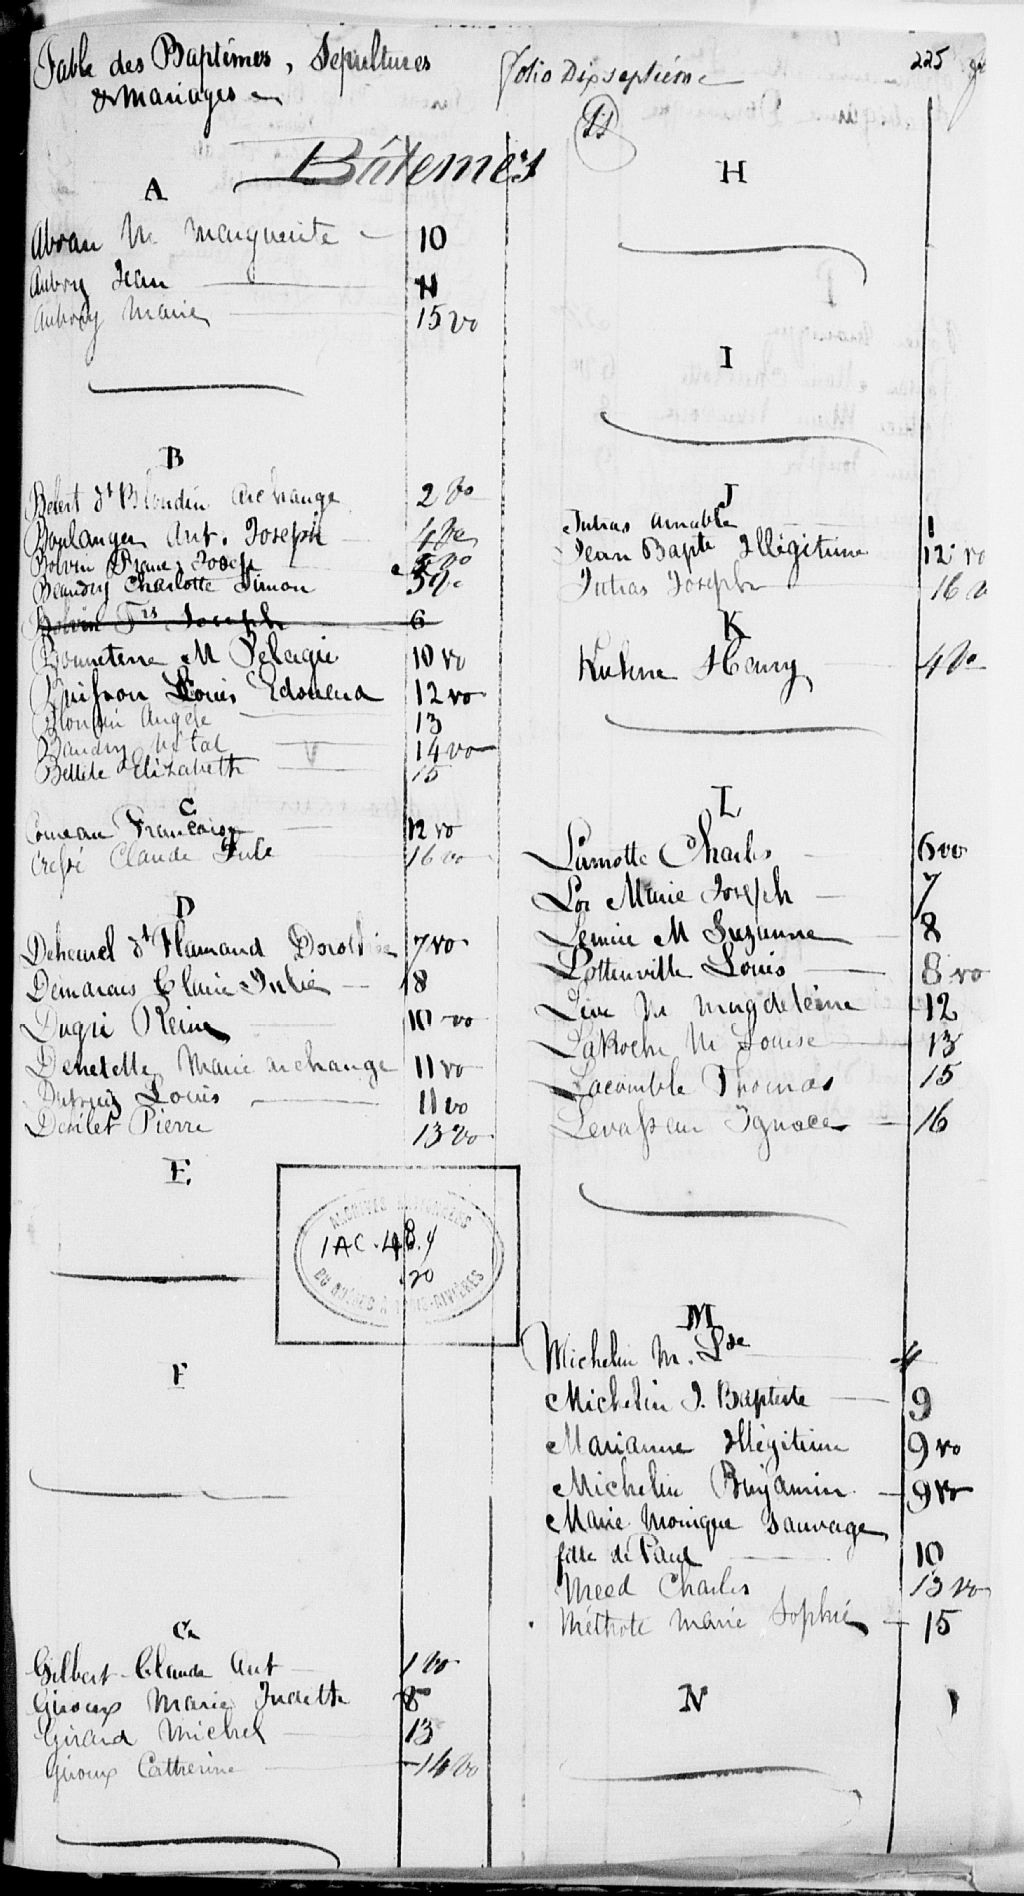 Table des Baptêmes, Sepultures
& Mariages
folio Dixseptiéme
225
17
Bâtemes
A
Abran M. Marguerite 10
Aubry Jean 11
Aubry Marie 15 vo
B
Bebert dt Blondin Archange 2 vo
Boulanger Ant. Joseph 4 vo
Boivin Franc. Joseph 5 vo
Beaudry Charlotte Simon 5 vo
Boivin Frs Joseph 6
Bournetene M Pelagie 10 vo
Buisson Louis Edouard 12 vo
Blondin Angele 13
Baudry Vital 14 vo
Bellile Elizabeth 15
C
Comeau Francoise 12 vo
Cressé Claude Jule 16 vo
D
Dehemel dt Flamand Dorothée 7 vo
Demarais Claire Julie 8
Dugré Reine 10 vo
Denetelle Marie archange 11 vo
Louis 11 vo
Desilet Pierre 13 vo
E
ARCHIVES
1AC-48.4
.20
DU TROIS-RIVIÈRES
F
G
Gilbert Claude Ant 1 vo
Giroux Marie Judette 8
Girard Michel 13
Giroux Catherine 14 vo
H
I
J
Jutras Amable 1
Jean Bapte Illégitime 12 vo
Jutras Joseph 16 v
K
Kuhne Henry 4 vo
L
Lamotte Charles 6 vo
Lor Marie Joseph 7
Lemire M Suzanne 8
Lottinville Louis 8 vo
M magdeleine 12
LaRoche M Louise 13
Lacomble Thomas 15
Levasseur Ignace 16
M
Michelin M. Lse
Michelin J. Baptiste 9
Marianne Illégitime 9 vo
Michelin Benjamin 9 vo
Marie Monique Sauvage
fille de Paul 10
Meed Charles 13 vo
Méthote Marie Sophie 15
N